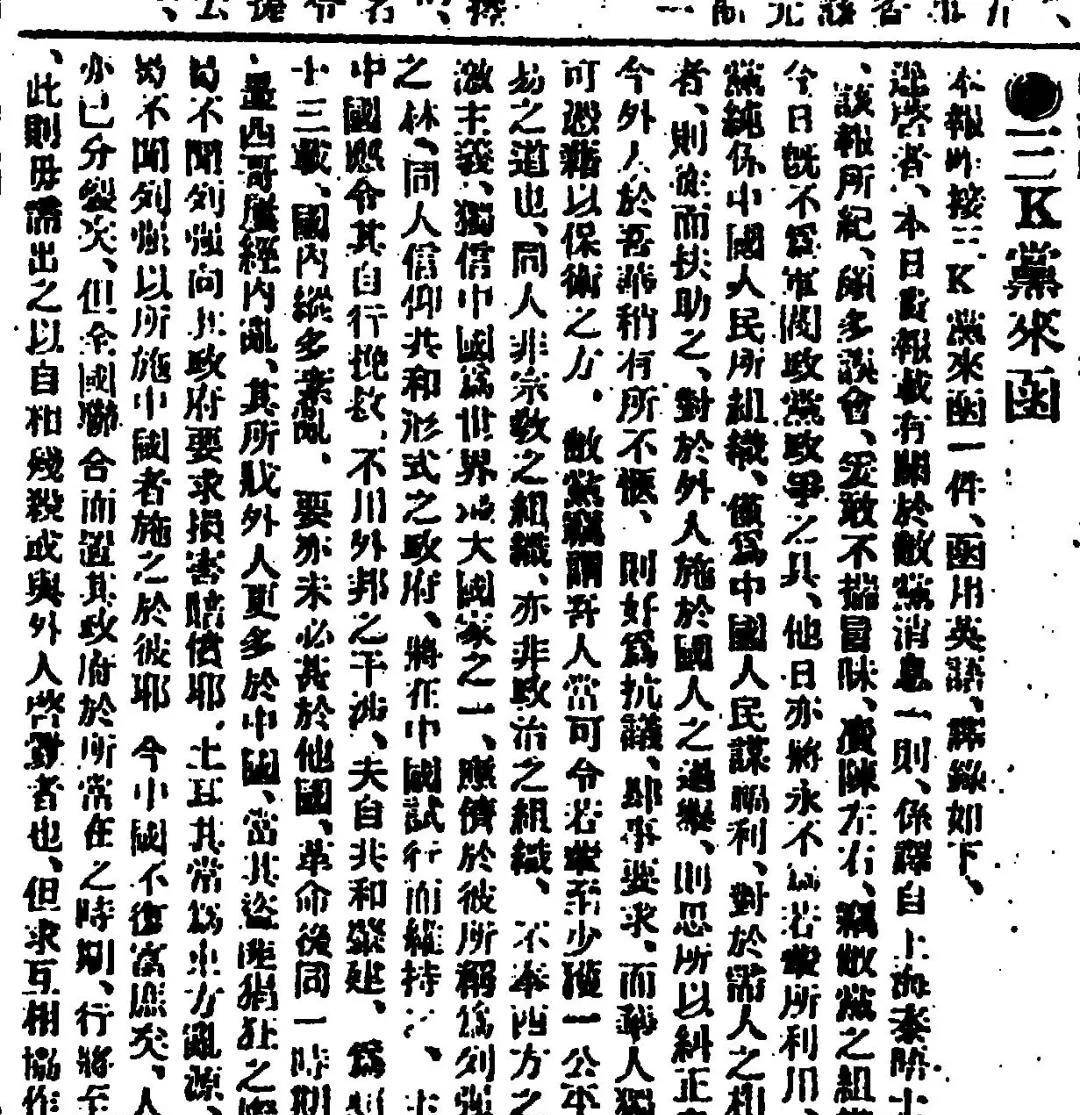 ●三K黨來函
本報昨接三K黨來函一件、函用英語、譯錄如下、
逕啓者、本日貴報載有關於敝黨消息一則、係譯自上海泰晤士
、該報所紀、頗多誤會、爰敢不揣冒昧、瀆陳左右、竊敝黨之組
今日旣不爲軍閥政黨政爭之具、他日亦將永不爲若輩所利用、
黨純係中國人民所組織、僅爲中國人民謀福利、對於需人之相
者、則從而扶助之、對於外人施於國人之過舉、則思所以糾正
今外人於吾輩稍有所不愜、則好爲抗議、肆事要求、而我人獨
可憑藉以保衛之力、敝黨竊謂吾人當可令若輩至少獲一公平
易之道也、同人非宗敎之組織、亦非政治之組織、不奉西方之
激主義、獨信中國爲世界最大國家之一、應儕於彼所稱爲列强
之林、同人信仰共和形式之政府、將在中國試行而維持之、
中國應令其自行挽救、不用外邦之干涉、夫自共和肇建、爲
十三載、國內縱多紊亂、要亦未必甚於他國、革命後同一時期
、墨西哥屢經內亂、其所戕外人更多於中國、當其盜匪猖狂之
曷不聞列强向其政府要求損害賠償耶、土耳其常爲東方亂源、
曷不聞列强以所施中國者施之於彼耶 今中國不復富庶矣、人
亦已分裂矣、但全國聯合而置其政府於所常在之時期、行將至
、此則毋需出之以自相殘殺或與外人啓釁者也、但求互相協作